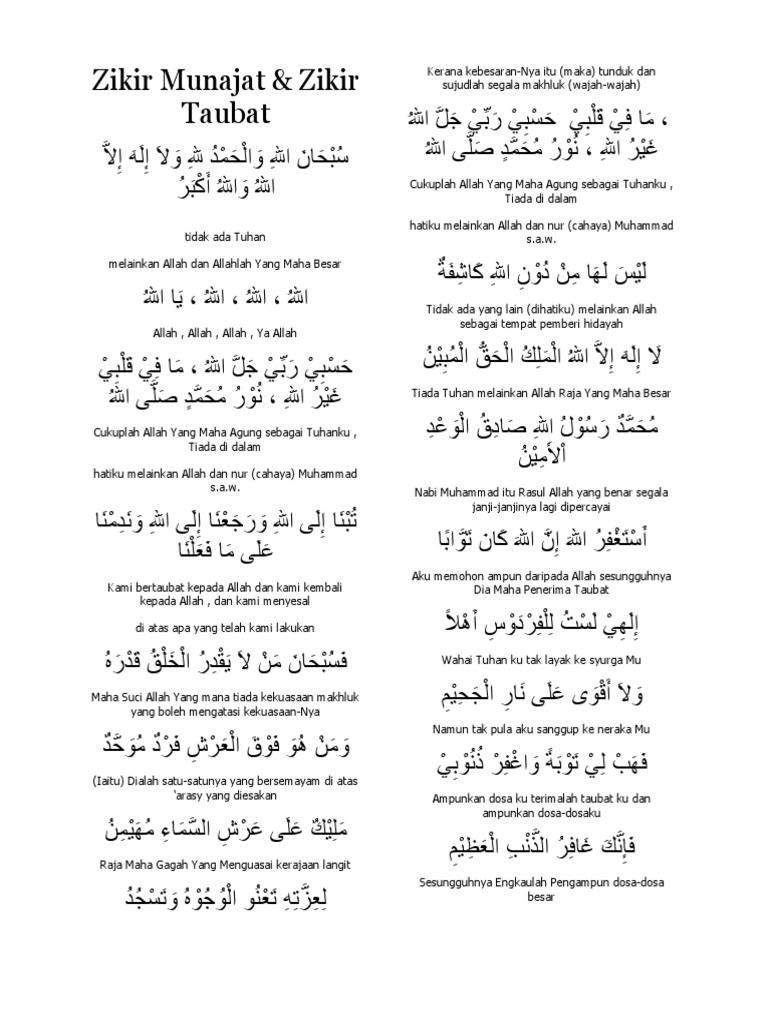 Zikir Munajat & Zikir
Taubat
سُبْحَانَ اللهِ وَالْحَمْدُ لِلهِ وَلاَ إِلَهَ إِلاَّ
اللهُ وَاللهُ أَكْبَرُ
tidak ada Tuhan
melainkan Allah dan Allahlah Yang Maha Besar
اللهُ ، اللهُ ، اللهُ ، يَا اللهُ
Allah , Allah , Allah , Ya Allah
حَسْبِيْ رَبِّيْ جَلَّ اللهُ ، مَا فِيْ قَلْبِيْ
غَيْرُ اللهِ ، نُوْرُ مُحَمَّدٍ صَلَّى اللهُ
Cukuplah Allah Yang Maha Agung sebagai Tuhanku ,
Tiada di dalam
hatiku melainkan Allah dan nur (cahaya) Muhammad
s.a.w.
تُبْنَا إِلَى اللهِ وَرَجَعْنَا إِلَى اللهِ وَنَدِمْنَا
عَلَى مَا فَعَلْنَا
Kami bertaubat kepada Allah dan kami kembali
kepada Allah , dan kami menyesal
di atas apa yang telah kami lakukan
فَسُبْحَانَ مَنْ لاَ يَقْدِرُ الْخَلْقُ قَدْرَهُ
Maha Suci Allah Yang mana tiada kekuasaan makhluk
yang boleh mengatasi kekuasaan-Nya
وَمَنْ هُوَ فَوْقَ الْعَرْشِ فَرْدٌ مُوَحَّدٌ
(Iaitu) Dialah satu-satunya yang bersemayam di atas
‘arasy yang diesakan
مَلِيْكٌ عَلَى عَرْشِ السَّمَاءِ مُهَيْمِنُ
Raja Maha Gagah Yang Menguasai kerajaan langit
لِعِزَّتِهِ تَعْنُو الْوُجُوْهُ وَتَسْجُدُ
Kerana kebesaran-Nya itu (maka) tunduk dan
sujudlah segala makhluk (wajah-wajah)
، مَا فِيْ قَلْبِيْ حَسْبِيْ رَبِّيْ جَلَّ اللهُ
غَيْرُ اللهِ ، نُوْرُ مُحَمَّدٍ صَلَّى اللهُ
Cukuplah Allah Yang Maha Agung sebagai Tuhanku ,
Tiada di dalam
hatiku melainkan Allah dan nur (cahaya) Muhammad
s.a.w.
لَيْسَ لَهَا مِنْ دُوْنِ اللهِ كَاشِفَةٌ
Tidak ada yang lain (dihatiku) melainkan Allah
sebagai tempat pemberi hidayah
لَا إِلَه إِلاَّ اللهُ الْمَلِكُ الْحَقُّ الْمُبِيْنُ
Tiada Tuhan melainkan Allah Raja Yang Maha Besar
مُحَمَّدٌ رَسُوْلُ اللهِ صَادِقُ الْوَعْدِ
اْلأَمِيْنُ
Nabi Muhammad itu Rasul Allah yang benar segala
janji-janjinya lagi dipercayai
أَسْتَغْفِرُ اللهَ إِنَّ اللهَ كَان تَوَّابًا
Aku memohon ampun daripada Allah sesungguhnya
Dia Maha Penerima Taubat
إِلَهِيْ لَسْتُ لِلْفِرْدَوْسِ أَهْلاً
Wahai Tuhan ku tak layak ke syurga Mu
وَلاَ أَقْوَى عَلَى نَارِ الْجَحِيْمِ
Namun tak pula aku sanggup ke neraka Mu
فَهَبْ لِيْ تَوْبَةً وَاغْفِرْ ذُنُوْبِيْ
Ampunkan dosa ku terimalah taubat ku dan
ampunkan dosa-dosaku
فَإِنَّكَ غَافِرُ الذَّنْبِ الْعَظِيْمِ
Sesungguhnya Engkaulah Pengampun dosa-dosa
besar